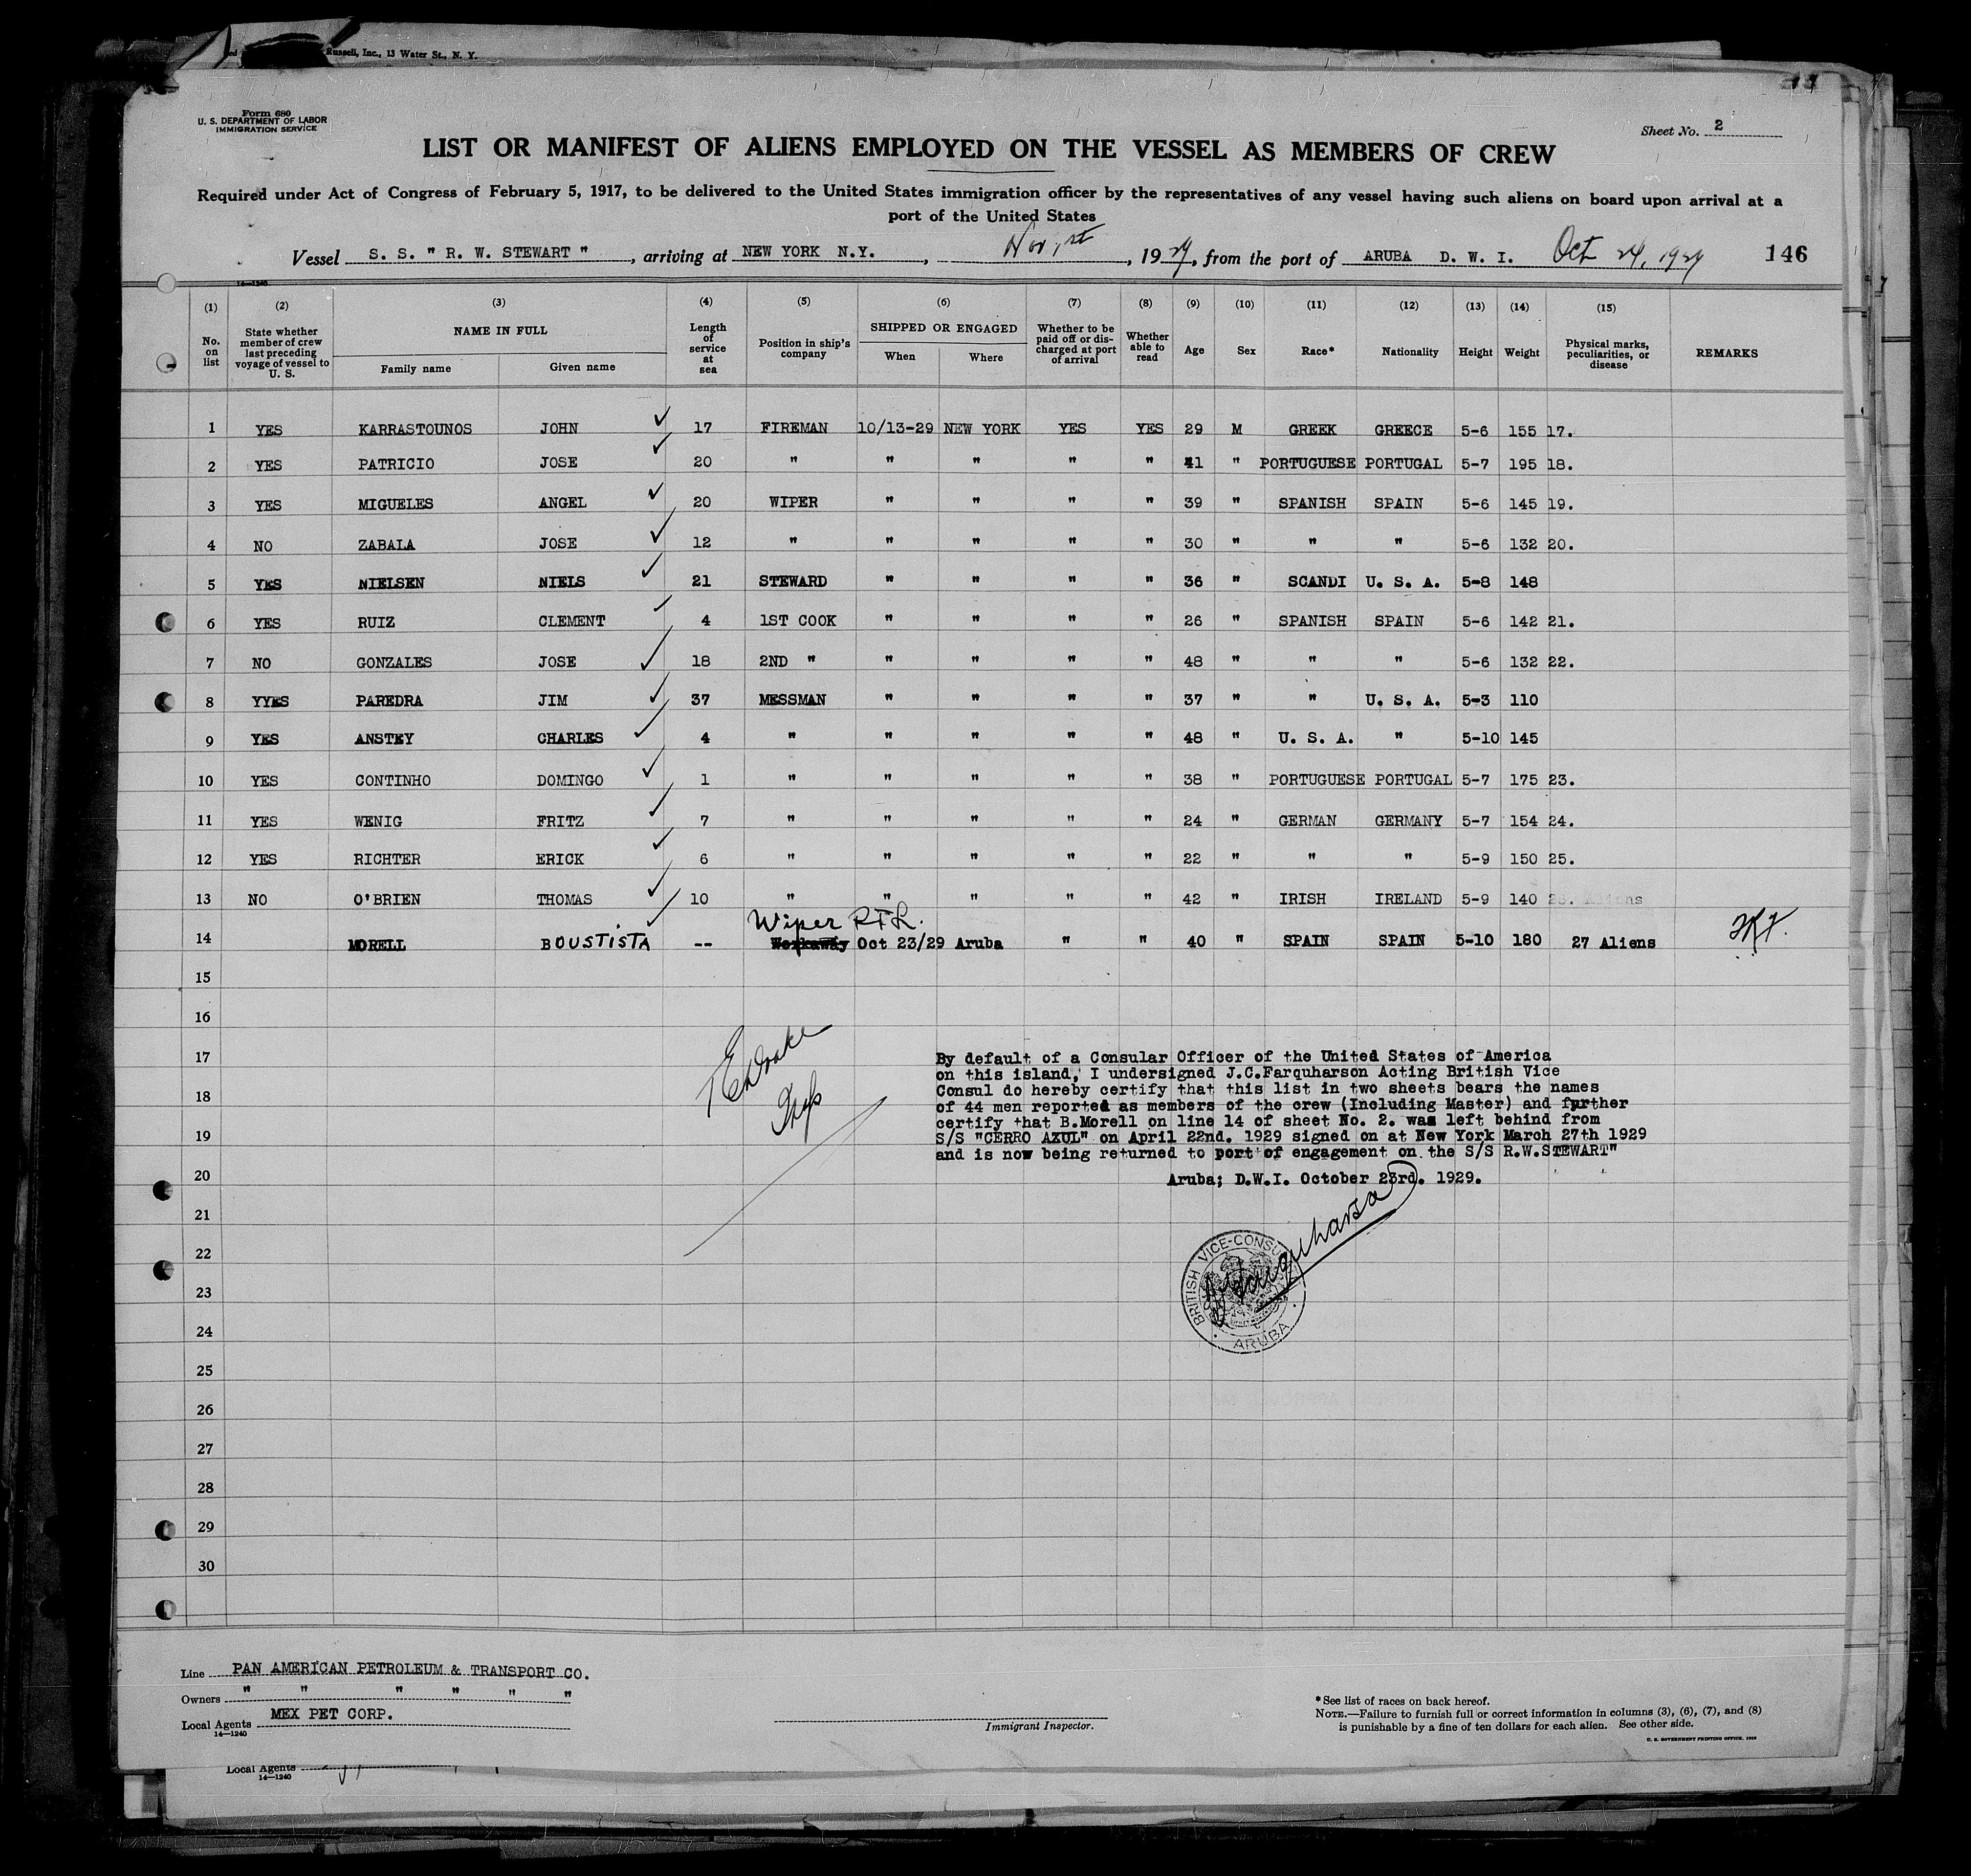 Russell, Inc., 13 Water St., N. Y.
Form 680
U. S. DEPARTMENT OF LABOR
IMMIGRATION SERVICE
Sheet No. 2
LIST OR MANIFEST OF ALIENS EMPLOYED ON THE VESSEL AS MEMBERS OF CREW
Required under Act of Congress of February 5, 1917, to be delivered to the United States immigration officer by the representatives of any vessel having such aliens on board upon arrival at a
port of the United States
Vessel S. S. " R. W. STEWART ", arriving at NEW YORK N.Y., Nov 1st, 1929, from the port of ARUBA D. W. I. Oct 24, 1929 146
14—1240
(1) (2) (3) (4) (5) (6) (7) (8) (9) (10) (11) (12) (13) (14) (15)
No. on list
State whether member of crew last preceding voyage of vessel to U. S.
NAME IN FULL
Family name Given name
Length of service at sea
Position in ship's company
SHIPPED OR ENGAGED
When Where
Whether to be paid off or discharged at port of arrival
Whether able to read
Age
Sex
Race*
Nationality
Height
Weight
Physical marks, peculiarities, or disease
REMARKS
1 YES KARRASTOUNOS JOHN ✓ 17 FIREMAN 10/13-29 NEW YORK YES YES 29 M GREEK GREECE 5-6 155 17.
2 YES PATRICIO JOSE ✓ 20 " " " " " 41 " PORTUGUESE PORTUGAL 5-7 195 18.
3 YES MIGUELES ANGEL ✓ 20 WIPER " " " " 39 " SPANISH SPAIN 5-6 145 19.
4 NO ZABALA JOSE ✓ 12 " " " " " 30 " " " 5-6 132 20.
5 YES NIELSEN NIELS ✓ 21 STEWARD " " " " 36 " SCANDI U. S. A. 5-8 148
6 YES RUIZ CLEMENT ✓ 4 1ST COOK " " " " 26 " SPANISH SPAIN 5-6 142 21.
7 NO GONZALES JOSE ✓ 18 2ND " " " " " 48 " " " 5-6 132 22.
8 YYES PAREDRA JIM ✓ 37 MESSMAN " " " " 37 " " U. S. A. 5-3 110
9 YES ANSTEY CHARLES ✓ 4 " " " " " 48 " U. S. A. " 5-10 145
10 YES CONTINHO DOMINGO ✓ 1 " " " " " 38 " PORTUGUESE PORTUGAL 5-7 175 23.
11 YES WENIG FRITZ ✓ 7 " " " " " 24 " GERMAN GERMANY 5-7 154 24.
12 YES RICHTER ERICK ✓ 6 " " " " " 22 " " " 5-9 150 25.
13 NO O'BRIEN THOMAS ✓ 10 " " " " " 42 " IRISH IRELAND 5-9 140
Wiper
14 MORELL BOUSTISTA ✓ -- Workaway Oct 23/29 Aruba " " 40 " SPAIN SPAIN 5-10 180 27 Aliens
15
16
17
18
19
20
21
22
23
24
25
26
27
28
29
30
By default of a Consular Officer of the United States of America
on this island, I undersigned J.C.Farquharson Acting British Vice
Consul do hereby certify that this list in two sheets bears the names
of 44 men reported as members of the crew (Including Master) and further
certify that B.Morell on line 14 of sheet No. 2. was left behind from
S/S "CERRO AZUL" on April 22nd. 1929 signed on at New York March 27th 1929
and is now being returned to port of engagement on the S/S R.W.STEWART"
Aruba; D.W.I. October 23rd. 1929.
BRITISH VICE-CONSU
ARUBA
Line PAN AMERICAN PETROLEUM & TRANSPORT CO.
Owners " " " " " "
Local Agents MEX PET CORP.
14—1240
Immigrant Inspector.
*See list of races on back hereof.
NOTE.—Failure to furnish full or correct information in columns (3), (6), (7), and (8)
is punishable by a fine of ten dollars for each alien. See other side.
Local Agents
14—1240